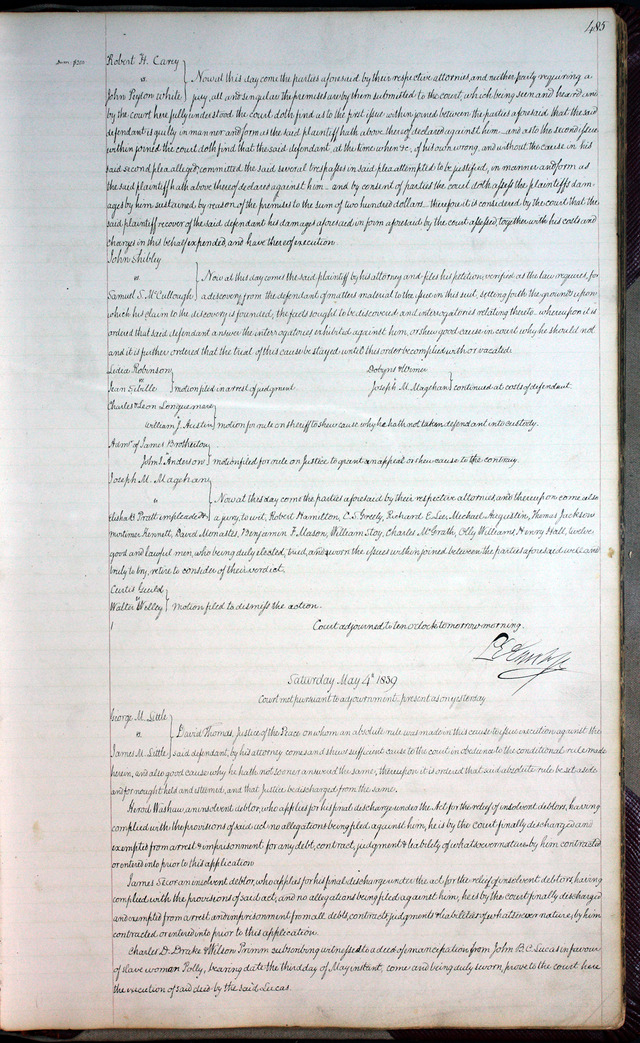 485
Robert H. Carey
vs
Now at this day come the parties aforesaid by their respective attornies, and neither party requiring a
John Peyton White
jury, all and singular the premises are by them submitted to the court, which being seen and heard and
by the court here fully understood the court doth find as to the first issue within joined between the parties aforesaid that the said
defendant is guilty in manner and form as the said plaintiff hath above thereof declared against him and as to the second issue
within joined the court doth find that the said defendant at the time when &c, of his own wrong, and without the cause in his
said second plea alleged, committed the said several trespasses in said plea attempted to be justified, in manner and form as
the said plaintiff hath above thereof declared against him and by consent of parties the court doth assess the plaintiffs dam-
ages by him sustained by reason of the premises to the sum of two hundred dollars therefore it is considered by the court that the
said plaintiff recover of the said defendant his damages aforesaid in form aforesaid by the court assessed, together with his costs and
charges in this behalf expended, and have thereof execution.
John
vs
Now at this day comes the said plaintiff by his attorney and files his petition, verified as the law requires, for
Samuel S. McCullough
a discovery from the defendant of matters material to the issue in this suit, setting forth the grounds upon
which his claim to the discovery is founded, the facts sought to be discovered and interrogatories relating thereto whereupon it is
ordered that said defendant answer the interrogatories exhibited against him, or shew good cause in court why he should not
and it is further ordered that the trial of this cause be stayed until this order be complied with or vacated
Lidia Robinson
vs
Jean Sibille
motion filed in arrest of judgment
Dobyns &
vs
Joseph M. Magehan
continued at costs of defendant.
Charles & Leon Longuemare
William J. Austin
motion for rule on sheriff to shew cause why he hath not taken defendant into custody.
Admr. of James Brotherton
John J. Anderson
motion filed for rule on Justice to grant an appeal or shew cause to the contrary.
Joseph M. Magehan
vs
Now at this day come the parties aforesaid by their respective attornies, and thereupon come also
Elisha B Pratt impleaded &c
a jury, to wit, Robert Hamilton, C. S. Greely, Richard E. Lee, Michael Augustin, Thomas Jackson
Mortimer Kennett, David Monatles, Benjamin F. Mason, William Stoy, Charles McGrath, Olly Williams, Henry Hall, twelve
good and lawful men, who being duly elected, tried, and sworn the issues within joined between the parties aforesaid well and
truly to try, retire to consider of their verdict.
Curtis Guild
vs
Walter Wolley
motion filed to dismiss the action.
Court adjourned to ten oclock tomorrow morning.
Saturday May 4th 1839
Court met pursuant to adjournment, present as on yesterday
George M. Little
vs
David Thomas, Justice of the Peace on whom an absolute rule was made in this cause to issue execution against the
James M. Little
said defendant, by his attorney comes and shews sufficient cause to the court in obedience to the conditional rule made
herein, and also good cause why he hath not sooner answered the same, thereupon it is ordered that said absolute rule be set aside
and for nought held and esteemed, and that Justice be discharged from the same.
an insolvent debtor, who applies for his final discharge under the Act for the relief of insolvent debtors, having
complied with the provisions of said act no allegations being filed against him, he is by the court finally discharged and
exempted from arrest & imprisonment for any debt, contract, judgment & liability of whatsoever nature by him contracted
or entered into prior to this application
James an insolvent debtor, who applies for his final discharge under the act for the relief of insolvent debtors, having
complied with the provisions of said act, and no allegations being filed against him, he is by the court finally discharged
and exempted from arrest and imprisonment from all debts, contracts, judgments & liabilities of whatsoever nature, by him
contracted or entered into prior to this application.
Charles D. Drake & Wilson Primm subscribing witnesses to a deed of emancipation from John B. C. Lucas in favour
of slave woman Polly, bearing date the third day of May instant, come and being duly sworn, prove to the court here
the execution of said deed by the said Lucas.